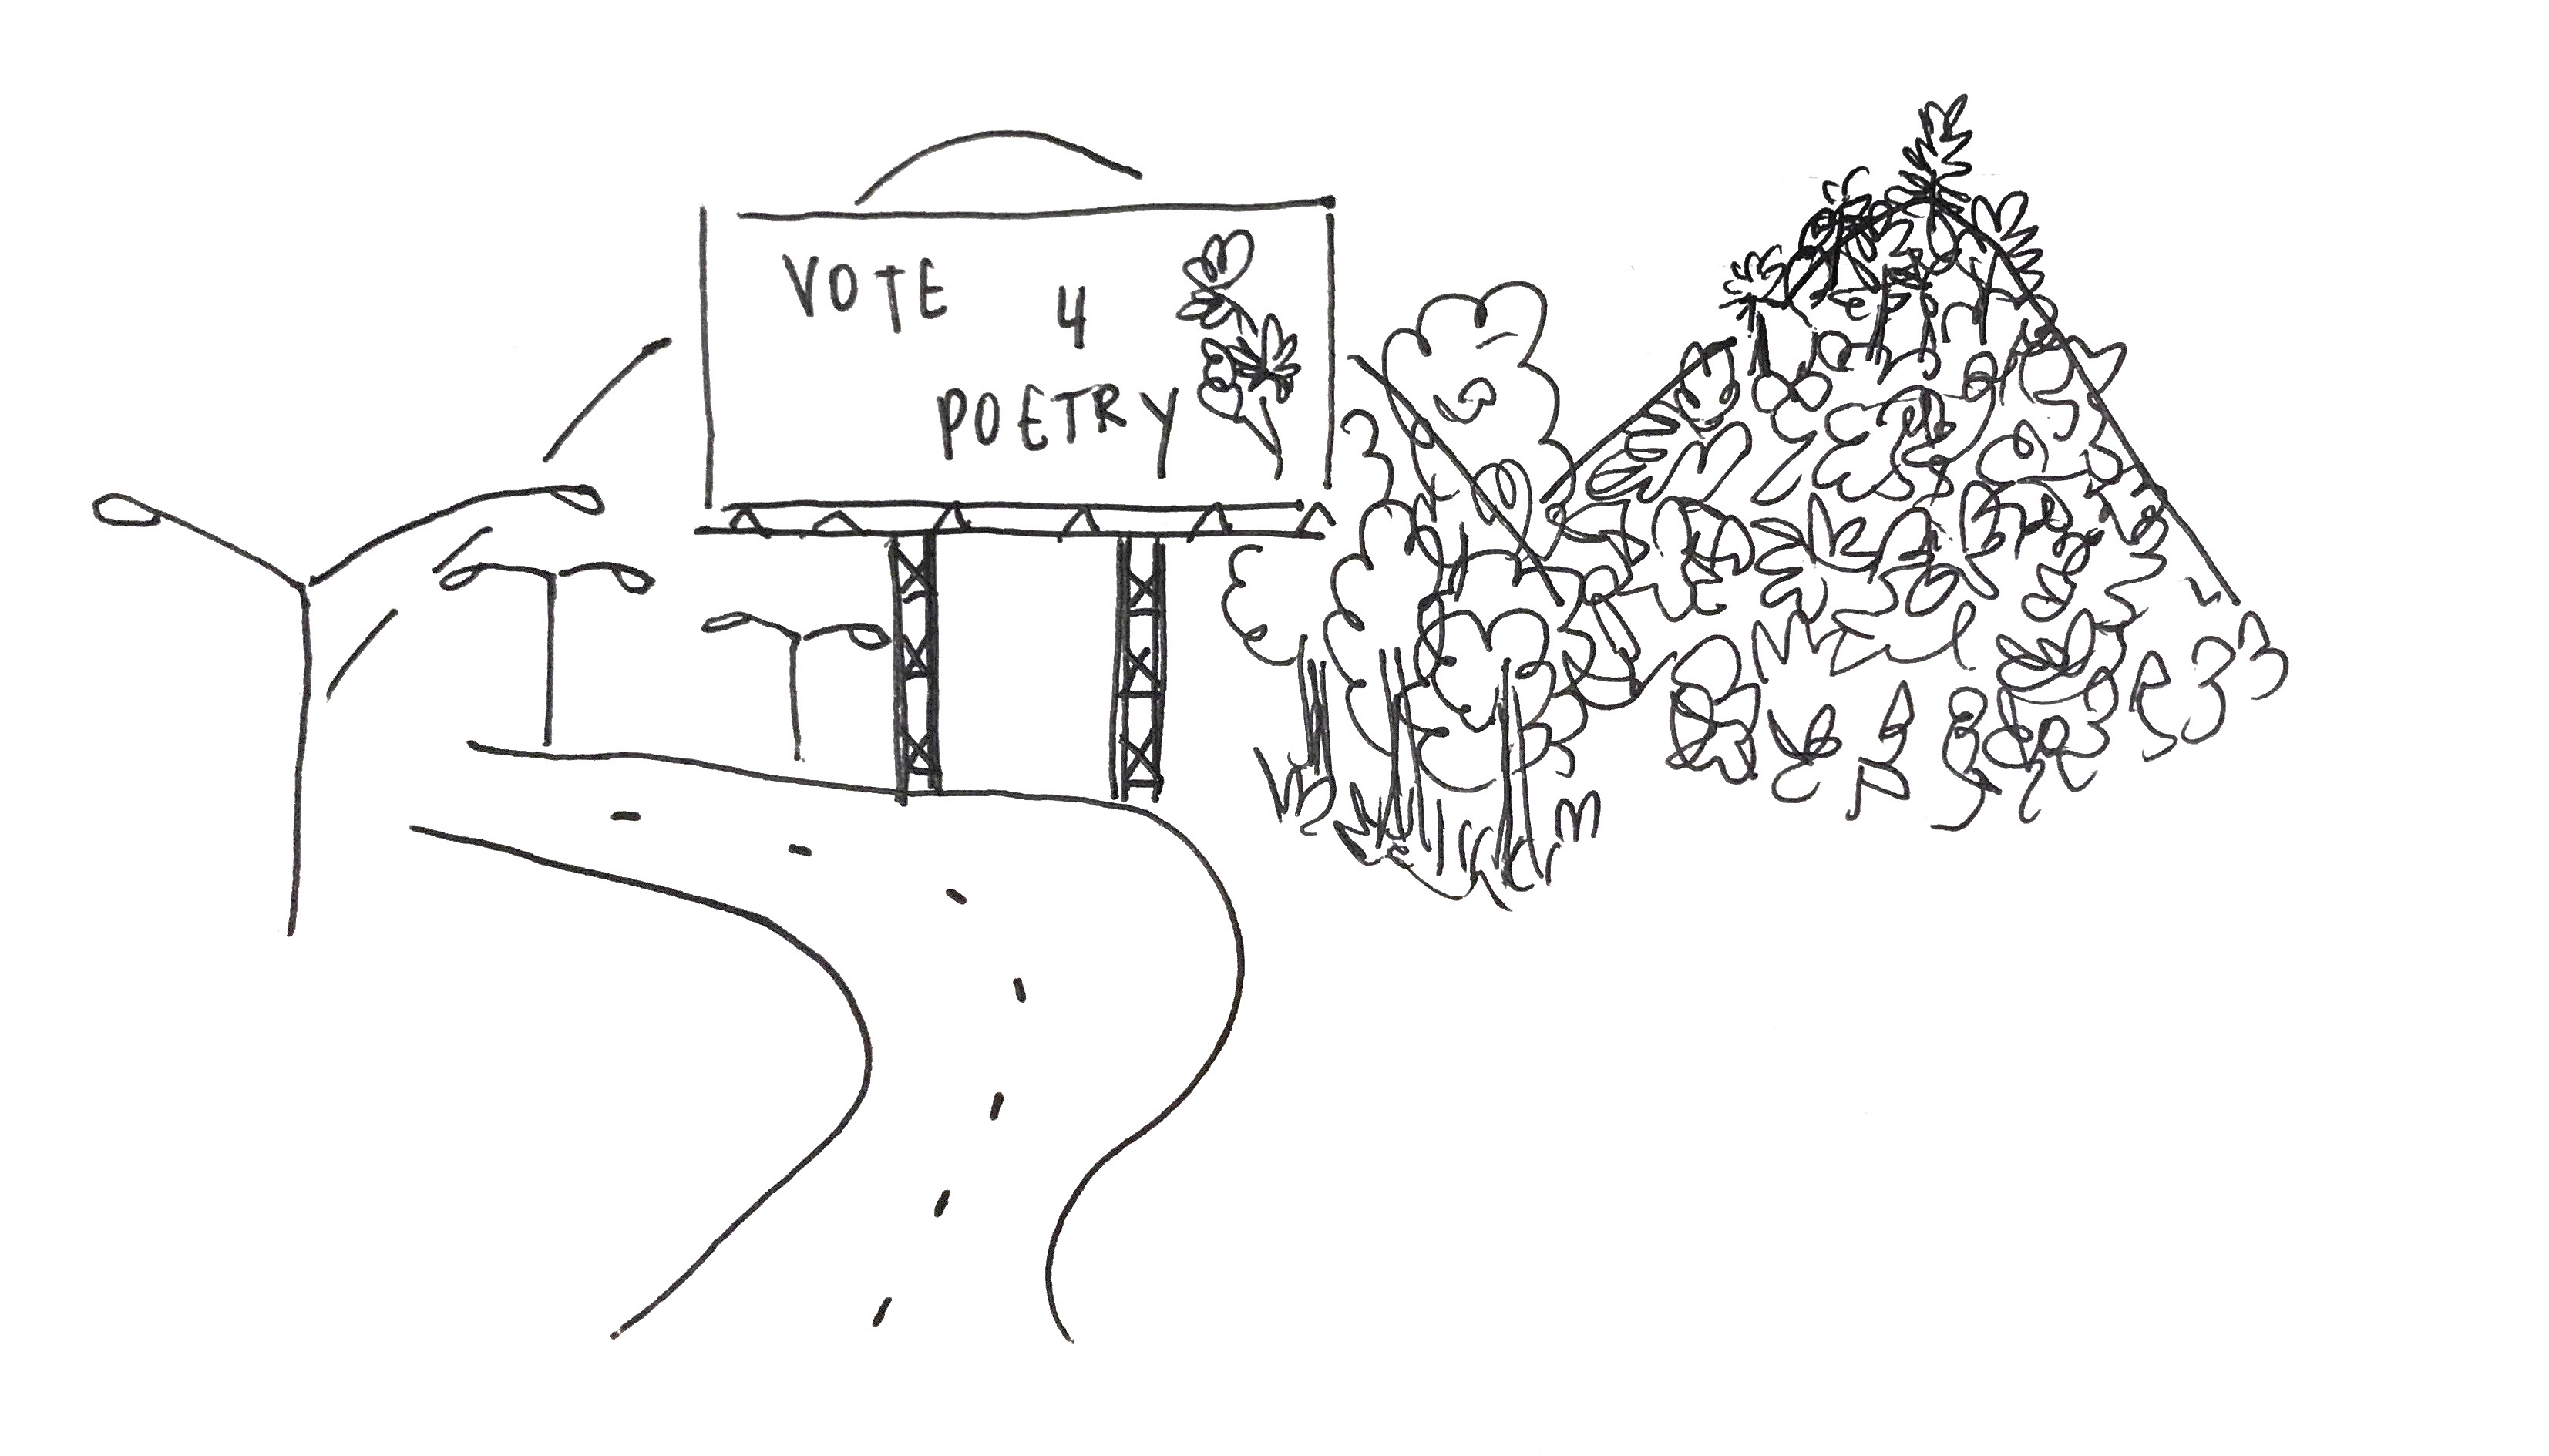 VOTE
4
POETRY